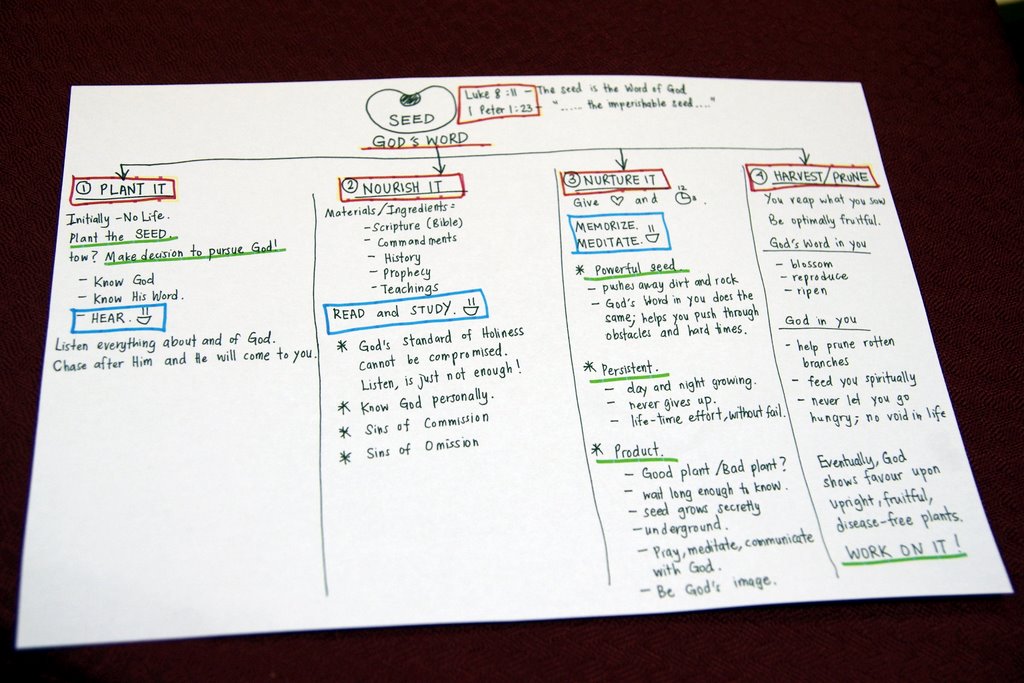 SEED
GOD'S WORD
Luke 8:11 - The seed is the Word of God
1 Peter 1:23 - "..... the imperishable seed...."
① PLANT IT
Initially - No Life.
Plant the SEED.
tow? Make decision to pursue God!
- Know God
- Know His Word.
- HEAR.
Listen everything about and of God.
Chase after Him and He will come to you.
② NOURISH IT
Materials/Ingredients:
- Scripture (Bible)
- Commandments
- History
- Prophecy
- Teachings
READ and STUDY.
* God's standard of Holiness
cannot be compromised.
Listen, is just not enough!
* Know God personally.
* Sins of Commission
* Sins of Omission
③ NURTURE IT
Give ♡ and 12 .
MEMORIZE.
MEDITATE.
* Powerful seed.
- pushes away dirt and rock
- God's Word in you does the
same; helps you push through
obstacles and hard times.
* Persistent.
- day and night growing.
- never gives up.
- life-time effort, without fail.
* Product.
- Good plant/Bad plant?
- wait long enough to know.
- seed grows secretly
- underground.
- Pray, meditate, communicate
with God.
- Be God's image.
④ HARVEST/PRUNE
You reap what you sow
Be optimally fruitful.
God's Word in you
- blossom
- reproduce
- ripen
God in you
- help prune rotten
branches
- feed you spiritually
- never let you go
hungry; no void in life
Eventually, God
shows favour upon
upright, fruitful,
disease-free plants.
WORK ON IT!